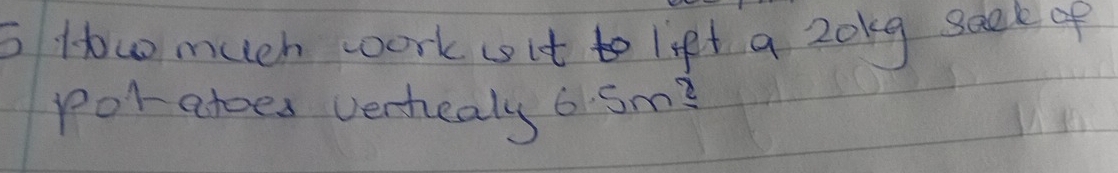 5 How much work is it to lift a 20kg sack of
potatoes verticaly 6.5m?